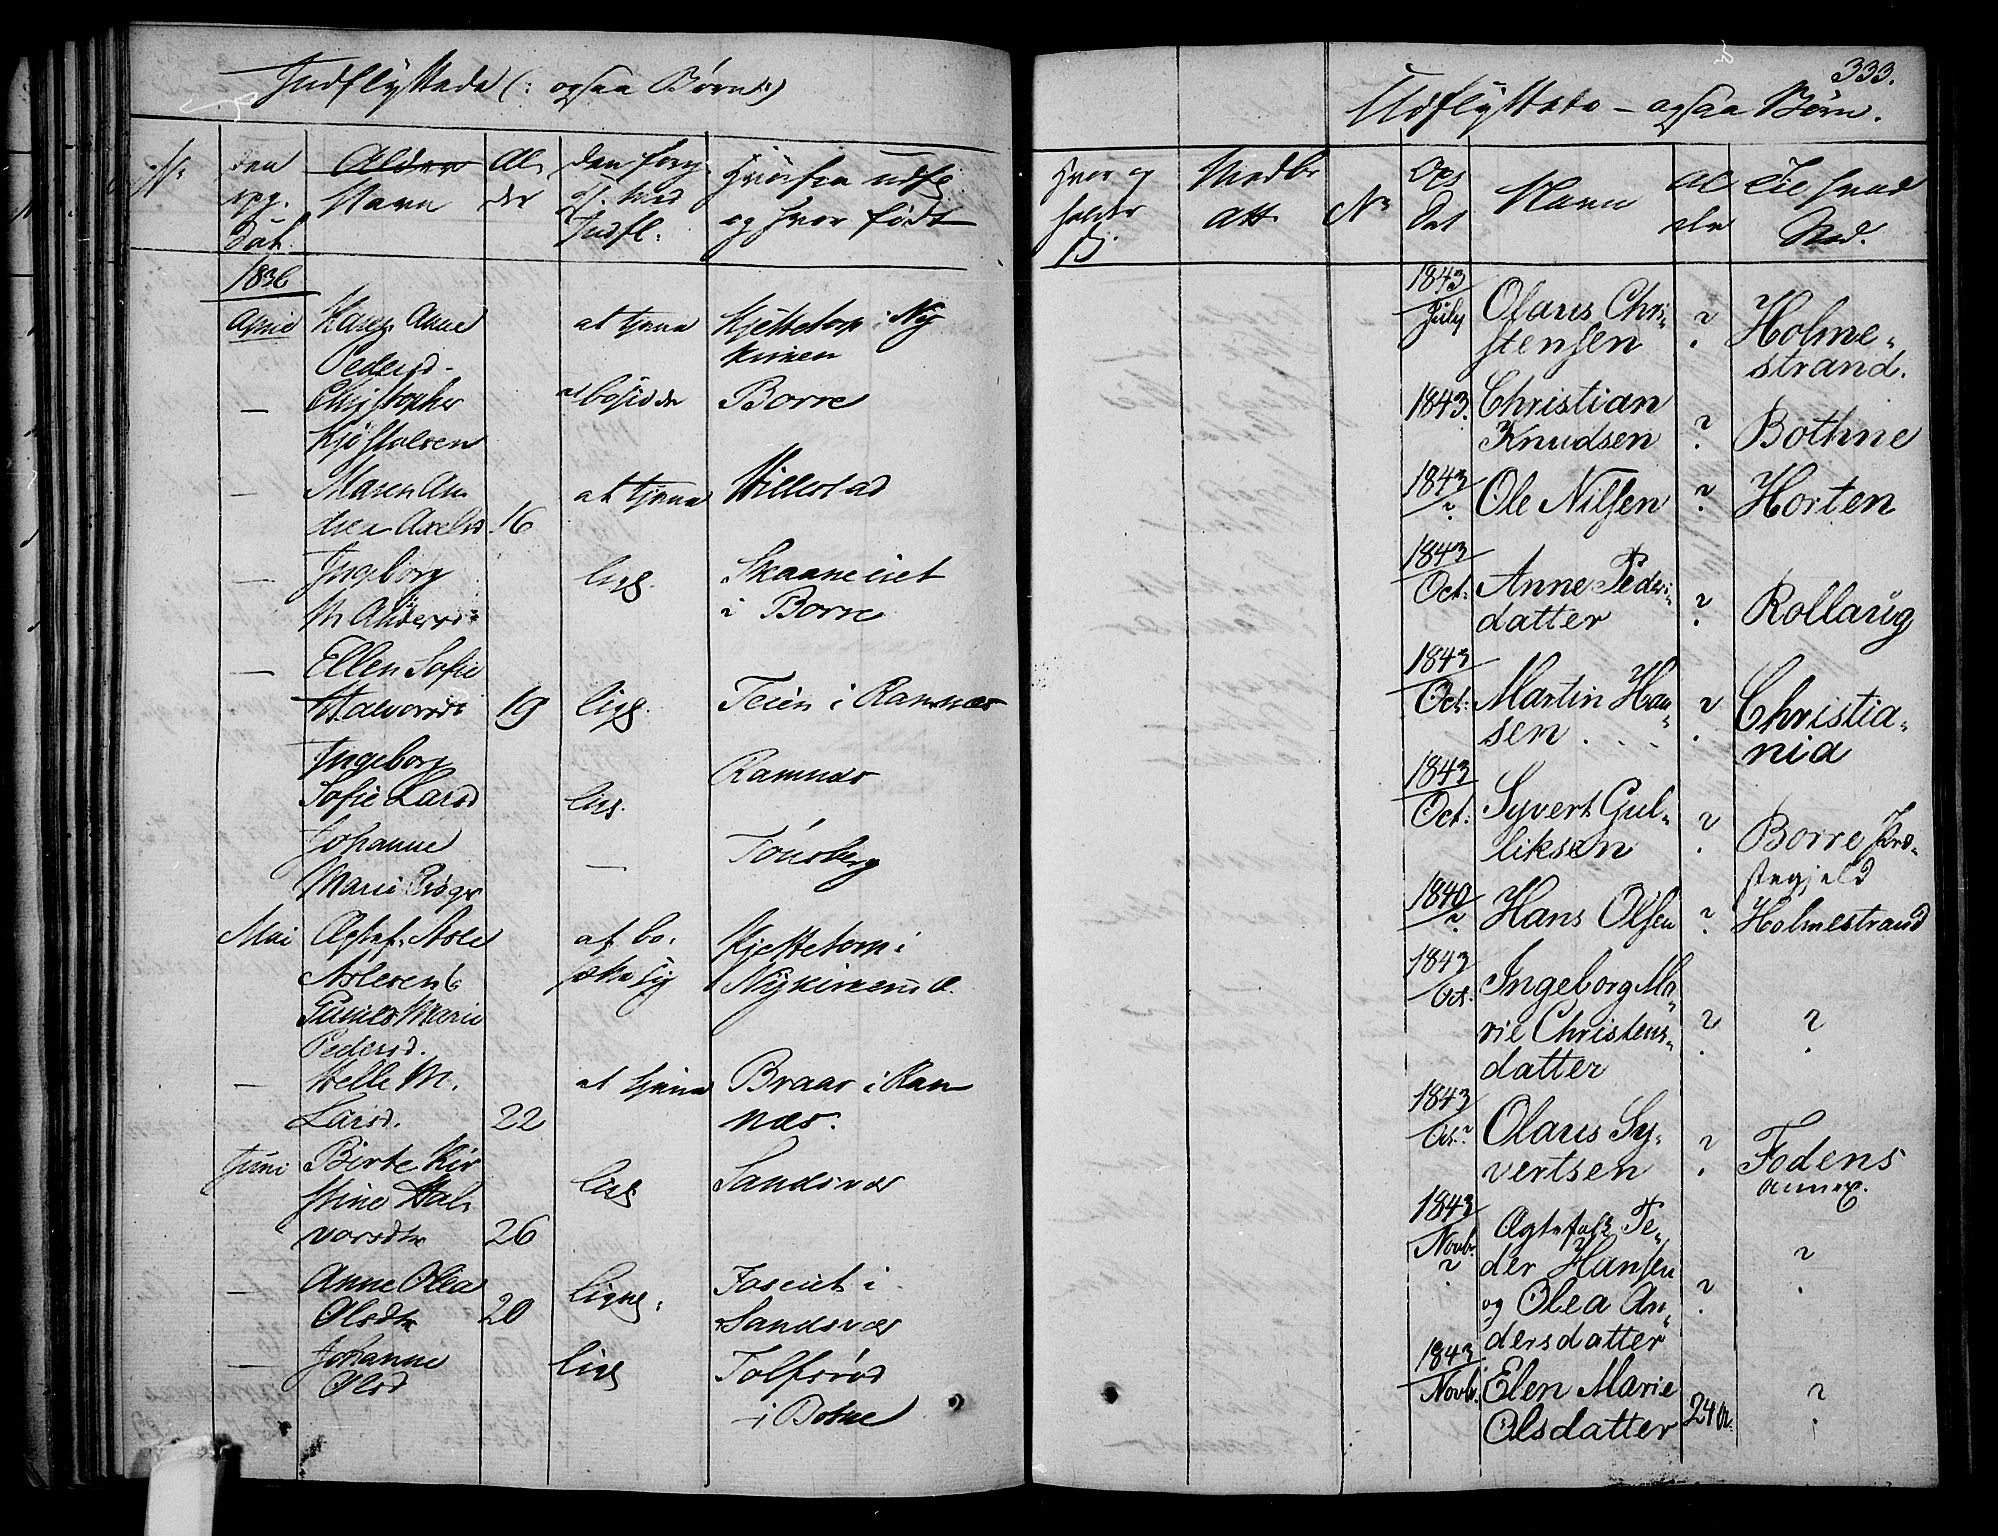 Indflyttede (: ogsaa Børn :)
No
den
opg.
Dat.
Alder
Navn
Al
der
Hvorfra udfl
og hvor født
1836
April
Karen Anne
Pedersd.
at tjene
Kjettetorp i Ny
kirken
—
Christopher
Kjøstolsen
Borre
—
Maren An
drea Axelsd
16
at tjene
Hillestad
—
Ingeborg
M. Andersd:
lige.
i Borre
—
Ellen Sofie
Halvorsd:
19
lige.
Teien i Ramnæs
Ingeborg
Sofie Larsd
lige.
Ramnæs
Johanne
Marie
—
Tønsberg
Mai
Ægtef. Asle
Aslesen &
Gunild Marie
Pedersd.
at bo-
sætte sig
Kjettetorp i
—
Helle M.
Larsd.
22
at tjene
Braar i Ram
næs.
Juni
Birte Kir
stine Hal-
vorsdtr
26
lige
Sandsvær
—
Anne Olea
Olsdtr
20
ligne.
i
Sandsvær
—
Johanne
Olsd
lige
Tolfsrød
i Botne
333.
Udflyttede – ogsaa Børn.
Hvor og
No
Op
Dat
Navn
Al
der
Til hvad
Sted.
1843
July
Olaus Chri-
stensen
?
Holme-
strand.
1843.
Christian
Knudsen
?
Bothne
1843
?
Ole Nilsen
?
Horten
1843
Oct:
Anne Peders-
datter
?
Rollaug
1843
Oct:
Martin Han-
sen . . . .
?
Christia-
nia
1843
Oct:
Syvert Gul-
liksen
?
Borre Præ-
stegjeld
1840
?
Hans Olsen
?
Holmestrand
1843
Oct.
Ingeborg Ma-
rie Christens-
datter
?
?
1843
Oct.?
Olaus Sy-
vertsen
?
Fodens
annex.
1843
Novb.
?
Ægtefolk Pe-
der Hansen
og Olea An-
dersdatter
?
?
1843
Novb.
Elen Marie
Olsdatter
24 A.
?